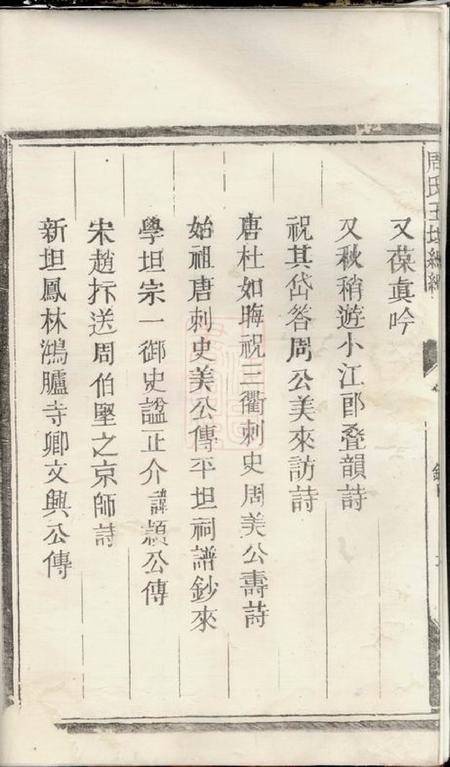 周氏
又葆眞吟
又秋稍遊小江郎叠韻詩
祝其岱答周公美來訪詩
唐杜如晦祝三衢刺史周美公壽詩
始祖唐刺史美公傳平坦祠譜鈔來
學坦宗一御史諡正介諱穎公傳
宋趙抃送周伯堅之京師詩
新坦鳳林鴻臚寺卿文興公傳